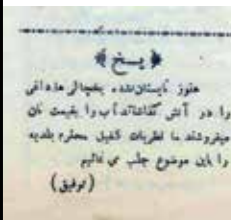 یخ
هنوز تابستان نشده یخچالی ها داغی
را در آتش گذاشته‌اند آب را بقیمت نان
میفروشند ما نظریات کفیل محترم بلدیه
را باین موضوع جلب می نمائیم
(توفیق)